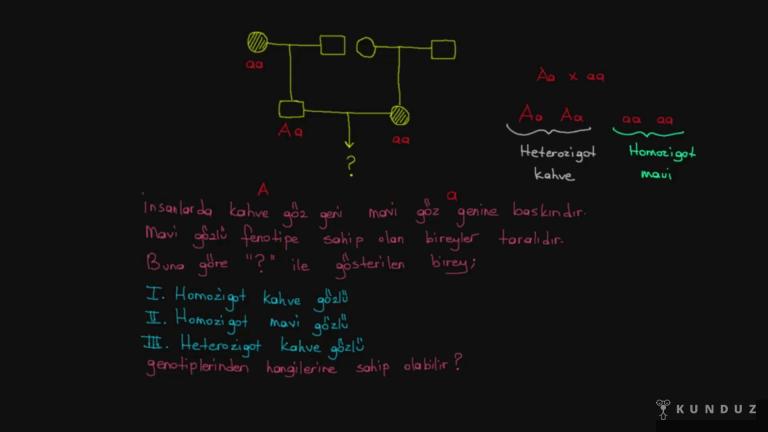 aa
Aa
aa
?
Aa x aa
Aa Aa aa aa
Heterozigot kahve
Homozigot mavi
A a
İnsanlarda kahve göz geni mavi göz genine baskındır.
Mavi gözlü fenotipe sahip olan bireyler taralıdır.
Buna göre "?" ile gösterilen birey;
I. Homozigot kahve gözlü
II. Homozigot mavi gözlü
III. Heterozigot kahve gözlü
genotiplerinden hangilerine sahip olabilir?
KUNDUZ